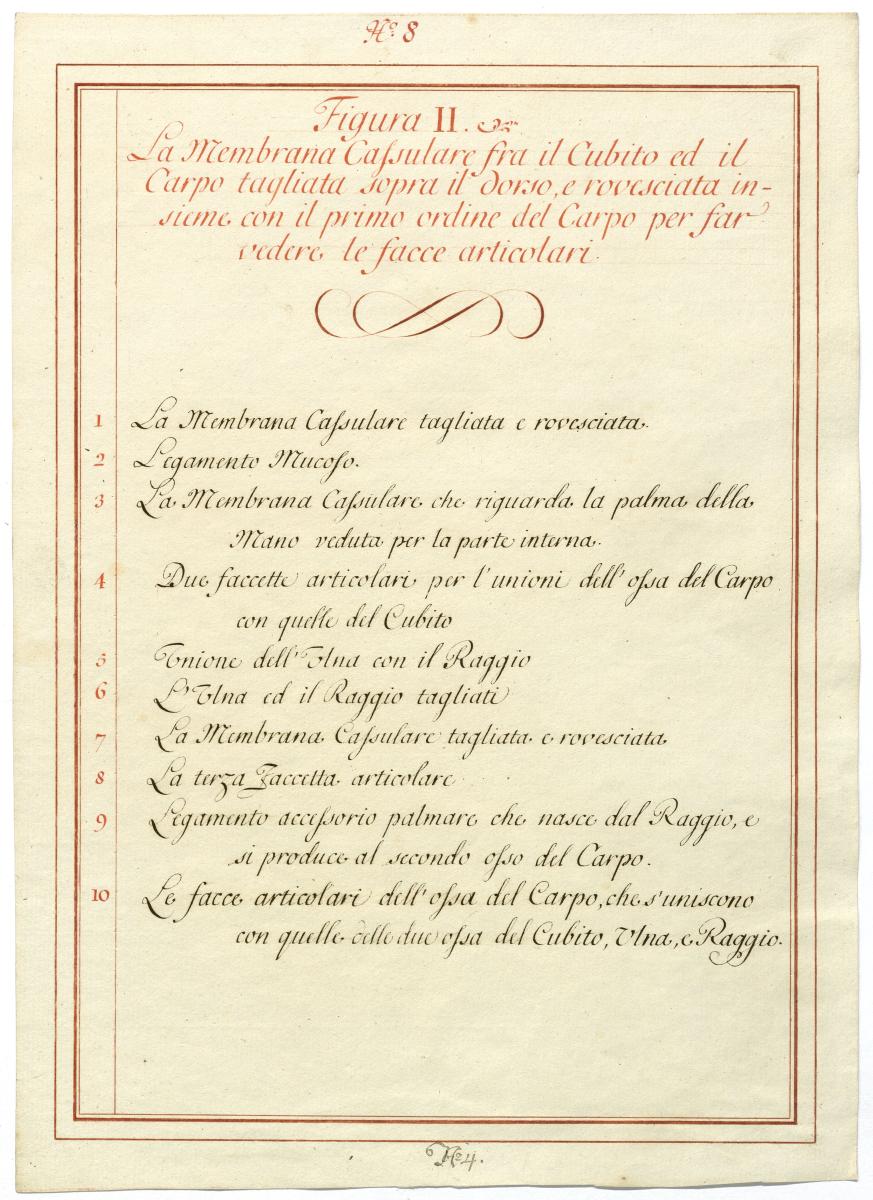 Nº 8
Figura II.
La Membrana Caſsulare fra il Cubito ed il
Carpo tagliata sopra il dorso, e rovesciata in-
sieme con il primo ordine del Carpo per far
vedere le facce articolari.
1 La Membrana Caſsulare tagliata e rovesciata.
2 Legamento Mucoſo.
3 La Membrana Caſsulare che riguarda la palma della
Mano veduta per la parte interna.
4 Due faccette articolari per l'unioni dell'oſsa del Carpo
con quelle del Cubito
5 Unione dell'Ulna con il Raggio
6 L'Ulna ed il Raggio tagliati
7 La Membrana Caſsulare tagliata e rovesciata
8 La terza Faccetta articolare
9 Legamento acceſsorio palmare che nasce dal Raggio, e
si produce al secondo oſso del Carpo.
10 Le facce articolari dell'oſsa del Carpo, che s'uniscono
con quelle delle due oſsa del Cubito, Ulna, e Raggio.
Nº 4.